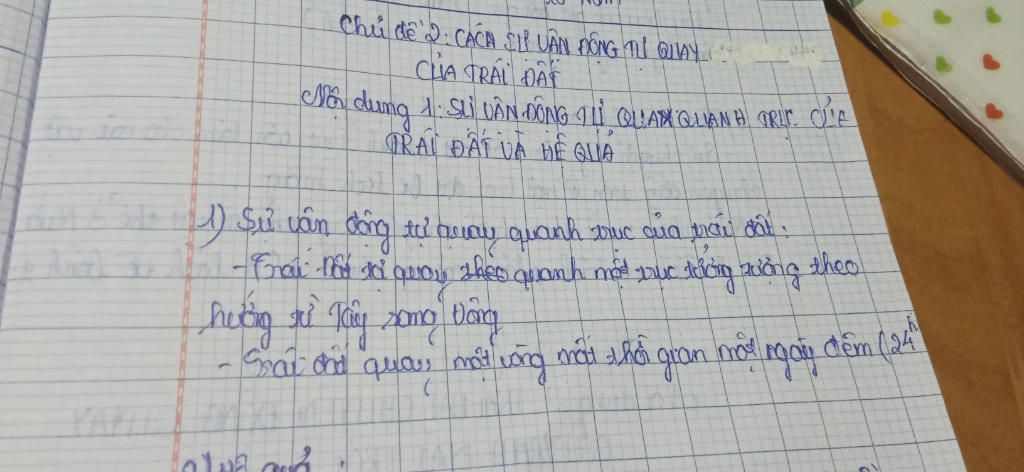 Chủ đề 2: CÁCH SỰ VẬN ĐỘNG TỰ QUAY
CỦA TRÁI ĐẤT
Nội dung 1: SỰ VẬN ĐỘNG TỰ QUAY QUANH TRỤC CỦA
TRÁI ĐẤT VÀ HỆ QUẢ
1) Sự vận động tự quay quanh trục của trái đất:
- Trái đất tự quay theo quanh một trục tưởng tượng theo
hướng từ Tây sang Đông
- Trái đất quay một vòng mất thời gian một ngày đêm (24h